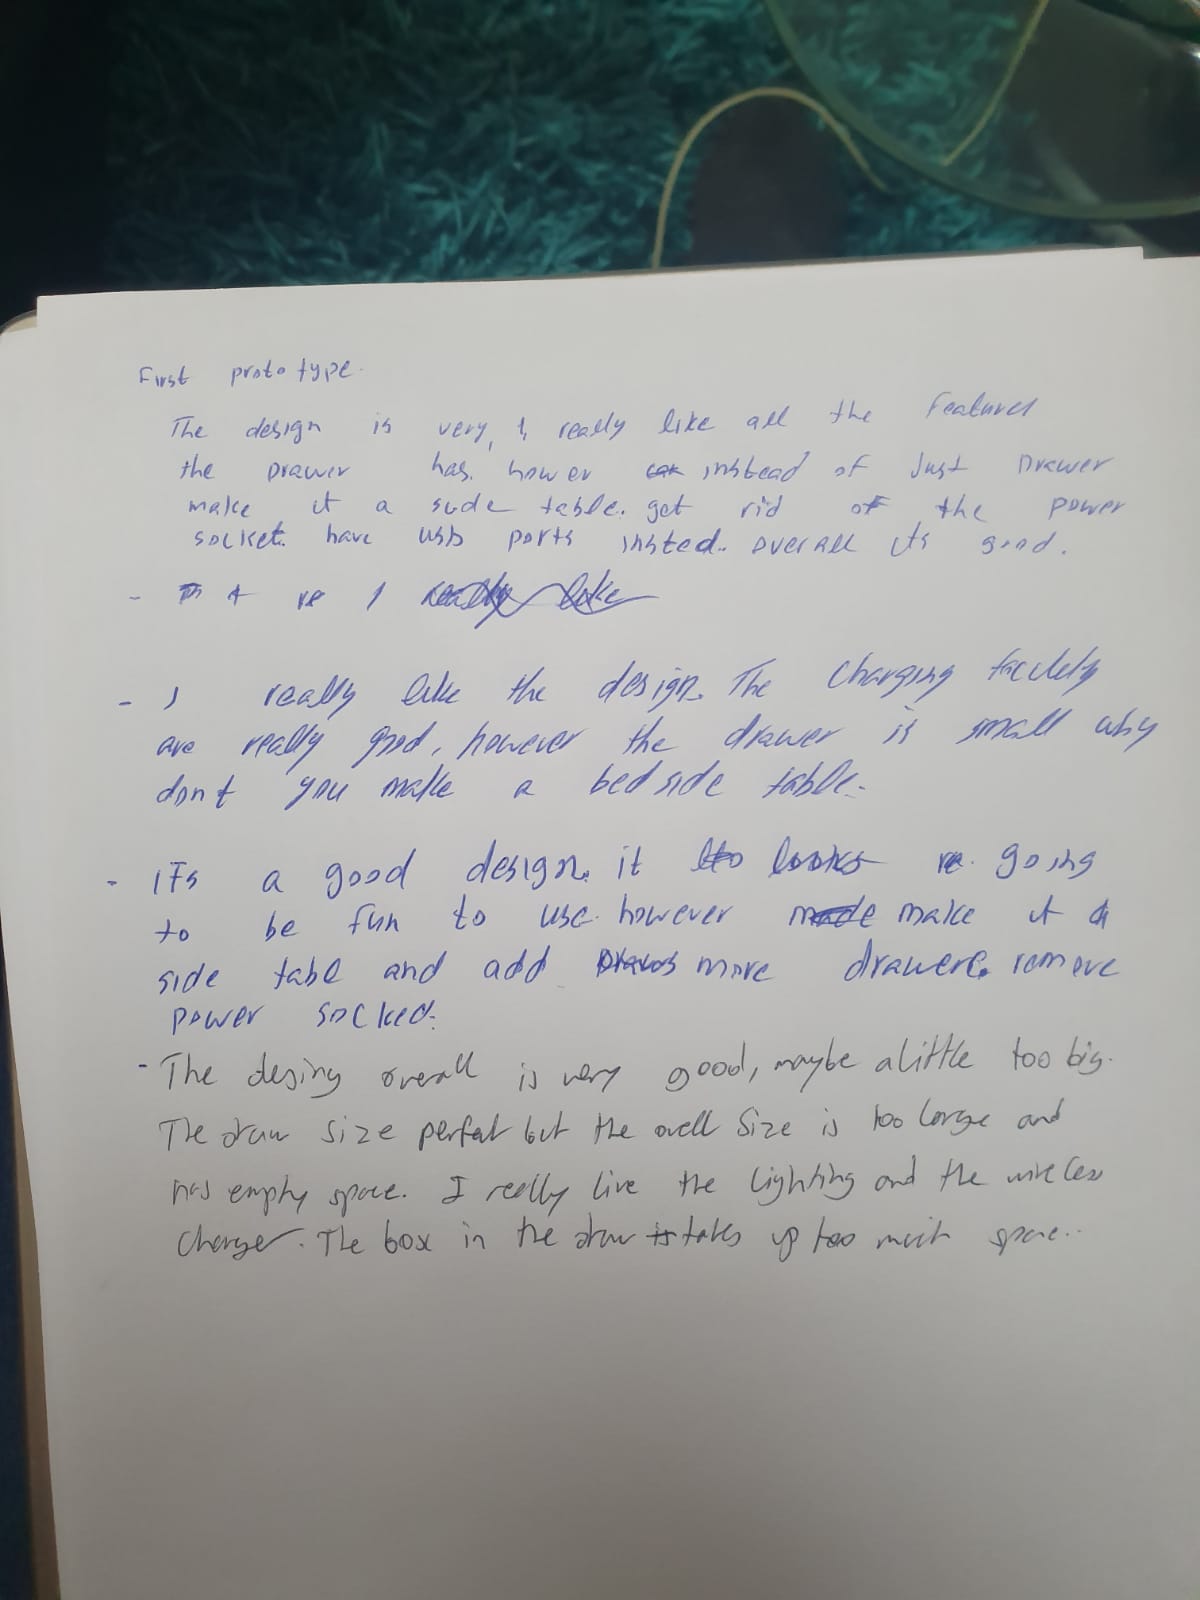 First prototype.
The design is very, I really like all the features
the Drawer has, hower instead of Just Drawer
make it a side table. get rid of the power
socket. have usb ports insted. overall its good.
- I really like
- I really like the design. The charging facilety
are really good, however the drawer is small why
dont you make a bedside table.
- its a good design. it looks going
to be fun to use. however made make it a
side tabl and add more drawers. remove
power socked.
- The desing overall is very good, maybe a little too big.
The draw size perfat but the ovell size is too large and
has empty space. I really live the lighting and the wireless
charger. The box in the draw is takes up too much space..